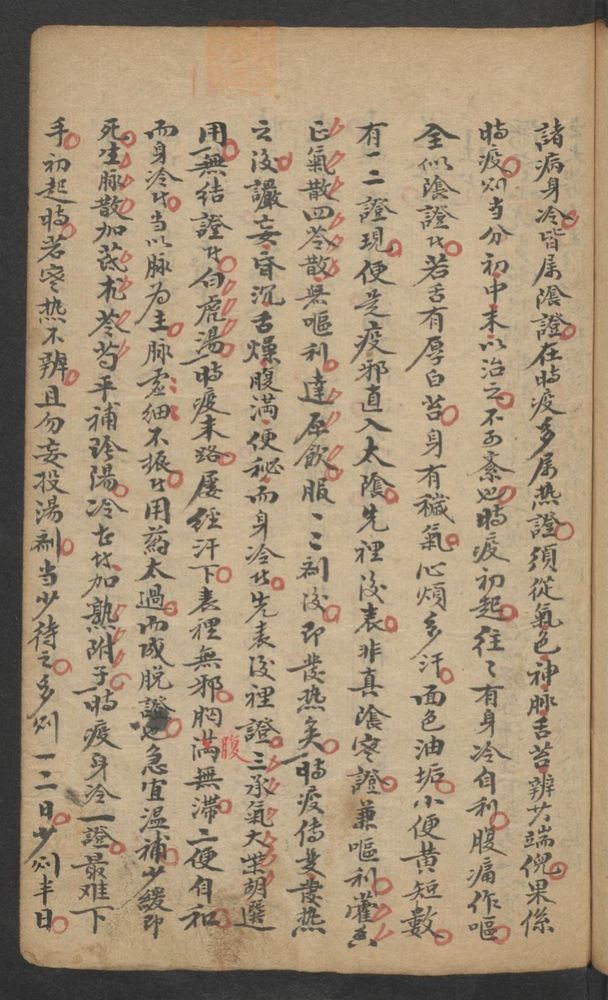 諸病身冷皆属陰證在時疫多属热證須從氣色神脉舌苔辨其端倪果係
時疫則当分初中末以治之不可紊也時疫初起往〻有身冷自利腹痛作嘔
全似陰證者若舌有厚白苔身有穢氣心煩多汗面色油垢小便黄短數
有一二證現便是疫邪直入太陰先裡後表非真陰寒證兼嘔利藿香
正氣散四苓散無嘔利達原飲服二三劑後即發热矣時疫傳变發热
之後讝妄昏沉舌燥腹满便秘而身冷者先表後裡證三承氣大柴胡選
用無結證者白虎湯時疫末路屡經汗下表裡無邪胸腹满無滯二便自和
而身冷者当以脉为主脉虚細不振者用药太過而成脱證也急宜温補少緩即
死生脉散加芪朮苓芍平補陰陽冷甚者加熟附子時疫身冷一證最难下
手初起時若寒热不辨且勿妄投湯劑当少待之多則一二日少則半日